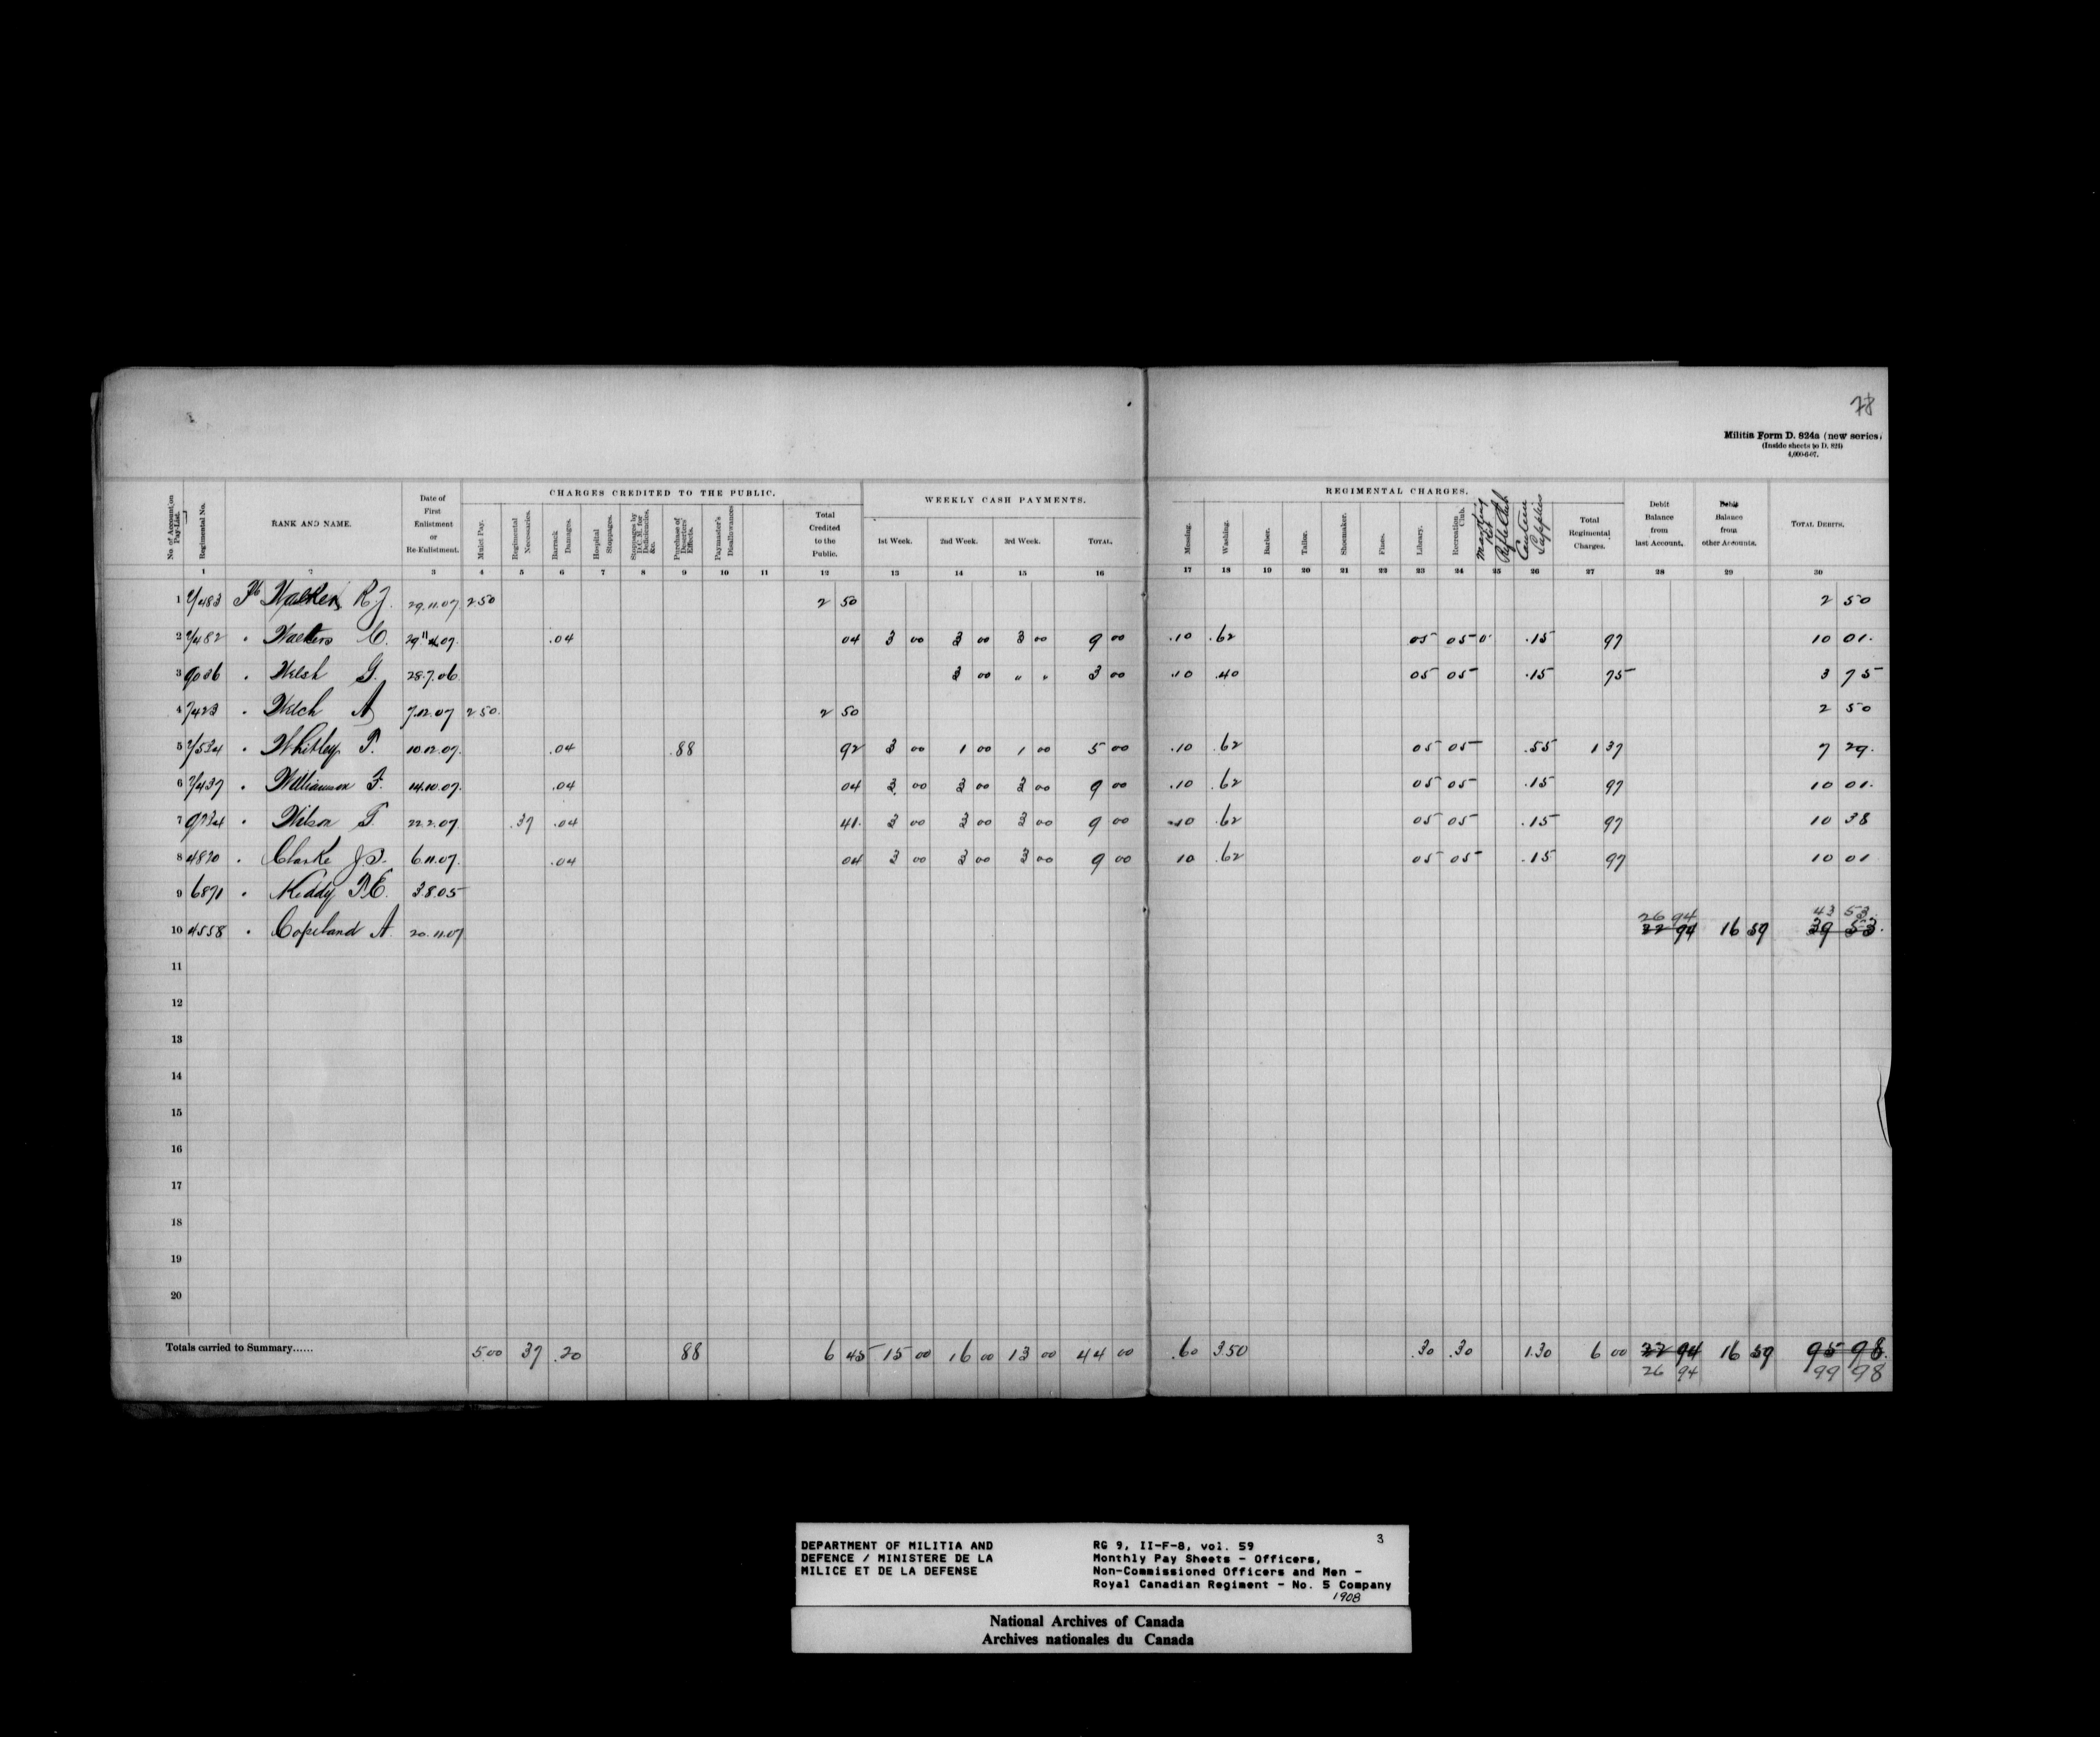 78
Militia Form D. 824a (new series)
(Inside sheets to D. 824)
4,000-6-07.
CHARGES CREDITED TO THE PUBLIC. WEEKLY CASH PAYMENTS. REGIMENTAL CHARGES.
No. of Account on Pay-List. Regimental No. RANK AND NAME. Date of First Enlistment or Re-Enlistment. Mulct Pay. Regimental Necessaries. Barrack Damages. Hospital Stoppages. Stoppages by D.C.M. for Deficiencies, &c. Purchase of Deserters' Effects. Paymaster's Disallowances Total Credited to the Public. 1st Week. 2nd Week. 3rd Week. TOTAL. Messing. Washing. Barber. Tailor. Shoemaker. Fines. Library. Recreation Club. Rifle Club Canteen Supplies Total Regimental Charges. Debit Balance from last Account. Debit Balance from other Accounts. TOTAL DEBITS.
1 2 3 4 5 6 7 8 9 10 11 12 13 14 15 16 17 18 19 20 21 22 23 24 25 26 27 28 29 30
1 7/483 Pte Walker R.J. 29.11.07 2 50 2 50 2 50
2 7/482 " Walters C. 29.11.07. .04 04 3 00 3 00 3 00 9 00 .10 .62 05 05 .15 97 10 01.
3 9036 " Welsh G. 28.7.06 3 00 " " 3 00 .10 .40 05 05 .15 75 3 75
4 7423 " Welch A 7.12.07 2 50. 2 50 2 50
5 7/534 " Whitley T. 10.12.07. .04 .88 92 3 00 1 00 1 00 5 00 .10 .62 05 05 .55 1 37 7 29.
6 7/437 " Williamson F. 14.10.07. .04 04 3 00 3 00 3 00 9 00 .10 .62 05 05 .15 97 10 01.
7 9734 " Wilson T. 22.2.07. .37 .04 41. 3 00 3 00 3 00 9 00 .10 .62 05 05 .15 97 10 38
8 4820 " Clarke 6.11.07. .04 04 3 00 3 00 3 00 9 00 10 .62 05 05 .15 97 10 01
9 6871 " Keddy T.E. 3.8.05
26 94 43 53
10 4558 " Copeland A. 20.11.07 22 94 16 59 39 53.
11
12
13
14
15
16
17
18
19
20
Totals carried to Summary...... 5.00 37 .20 88 6 45 15 00 16 00 13 00 44 00 .60 3.50 .30 .30 1.30 6 00 22 94 16 59 95 98.
26 94 99 98
DEPARTMENT OF MILITIA AND
DEFENCE / MINISTERE DE LA
MILICE ET DE LA DEFENSE
RG 9, II-F-8, vol. 59 3
Monthly Pay Sheets - Officers,
Non-Commissioned Officers and Men -
Royal Canadian Regiment - No. 5 Company
1908
National Archives of Canada
Archives nationales du Canada